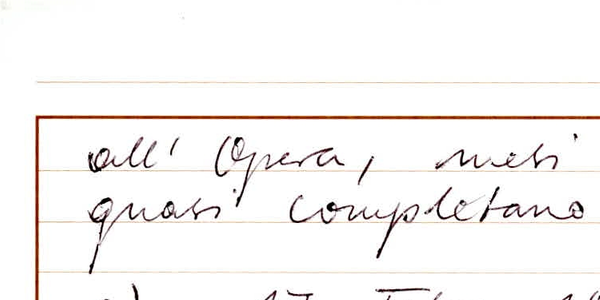 all' Opera, mesi
quasi completano